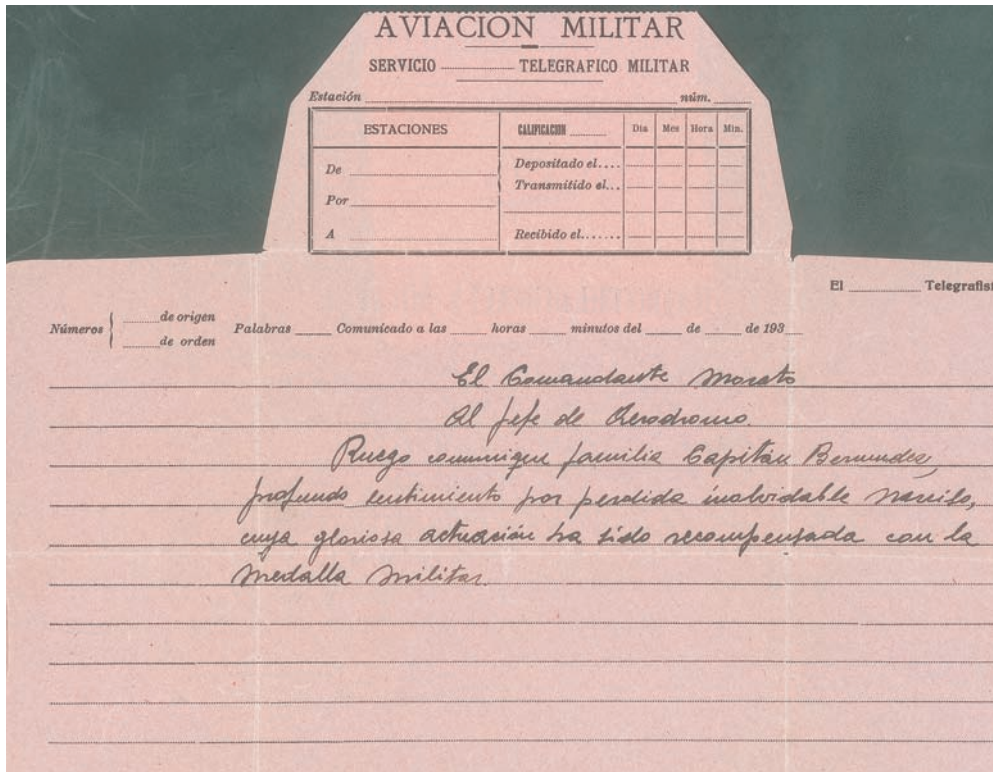 AVIACION MILITAR
SERVICIO TELEGRAFICO MILITAR
Estación núm.
ESTACIONES CALIFICACION Dia Mes Hora Min.
De Depositado el....
Transmitido el...
Por
A Recibido el.......
El Telegrafis
Números de origen Palabras Comunicado a las horas minutos del de de 193
de orden
El Comandante Morato
Al Jefe de Aerodromo.
Ruego comunique familia Capitán Bermudez,
profundo sentimiento por perdida inolvidable Narciso,
cuya gloriosa actuación ha sido recompensada con la
Medalla Militar.